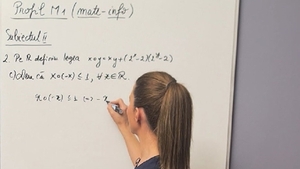 Profil M1 (mate-info)
Subiectul II
2. Pe R definim legea x∘y=xy+(2ˣ-2)(2ʸ-2)
c) dem că x∘(-x) ≤ 1, ∀ x∈R.
x∘(-x) ≤ 1 (=) -x